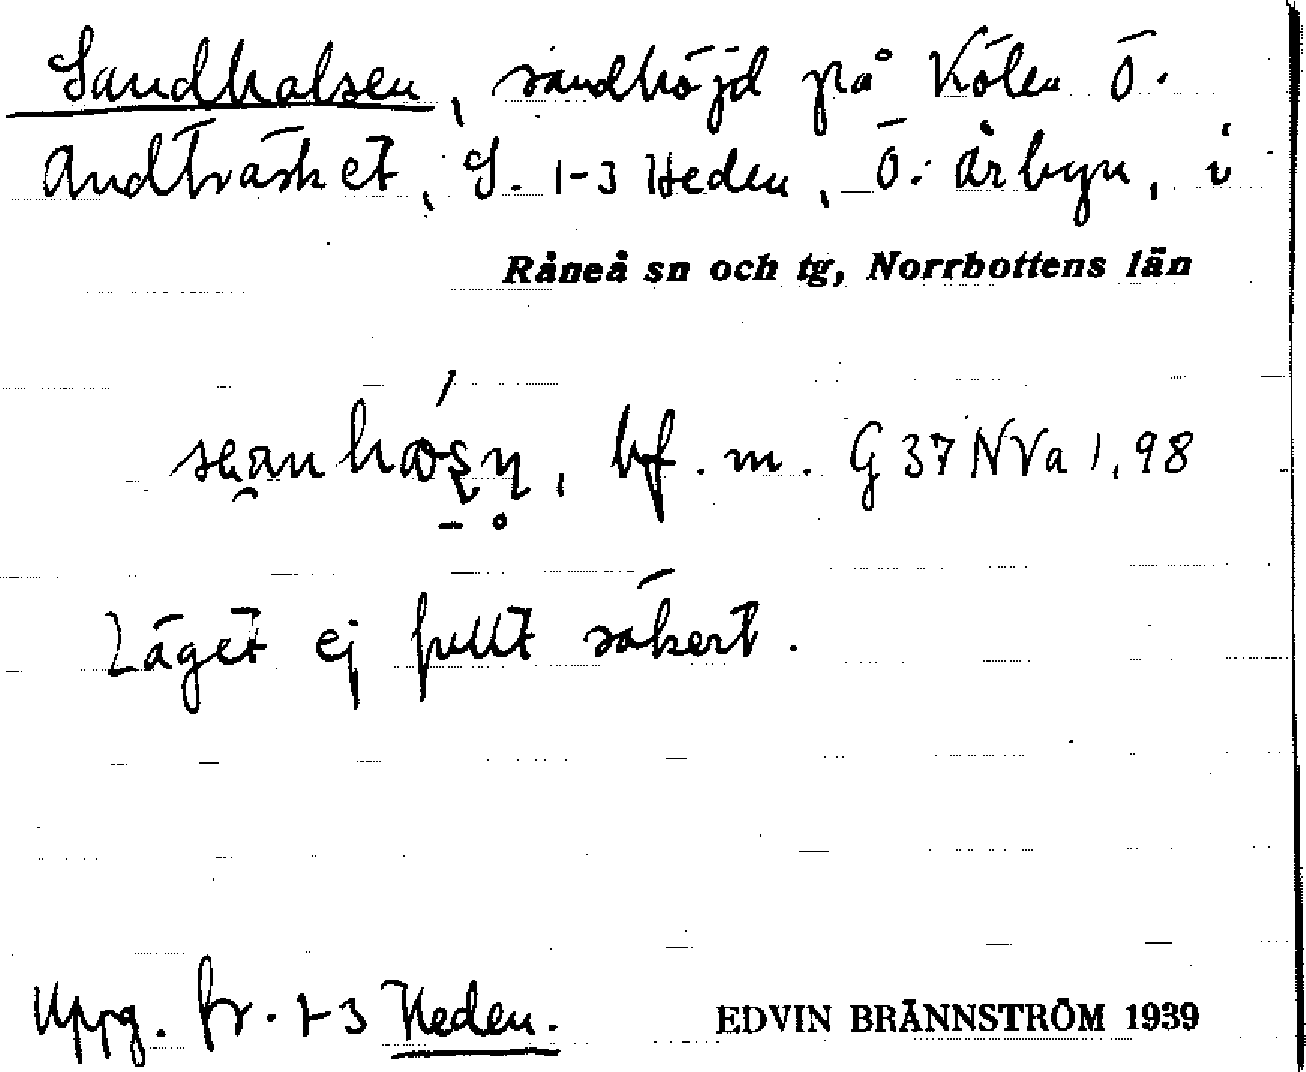 Sandhalsen, sandhöjd på Kölen Ö.
Andträsket, S. 1-3 Heden, Ö. årbyn, i
Råneå sn och tg, Norrbottens län
bf. m. G 37 NVa 1, 98
Läget ej fullt säkert.
Uppg. fr. 1-3 Heden.
EDVIN BRÄNNSTRÖM 1939